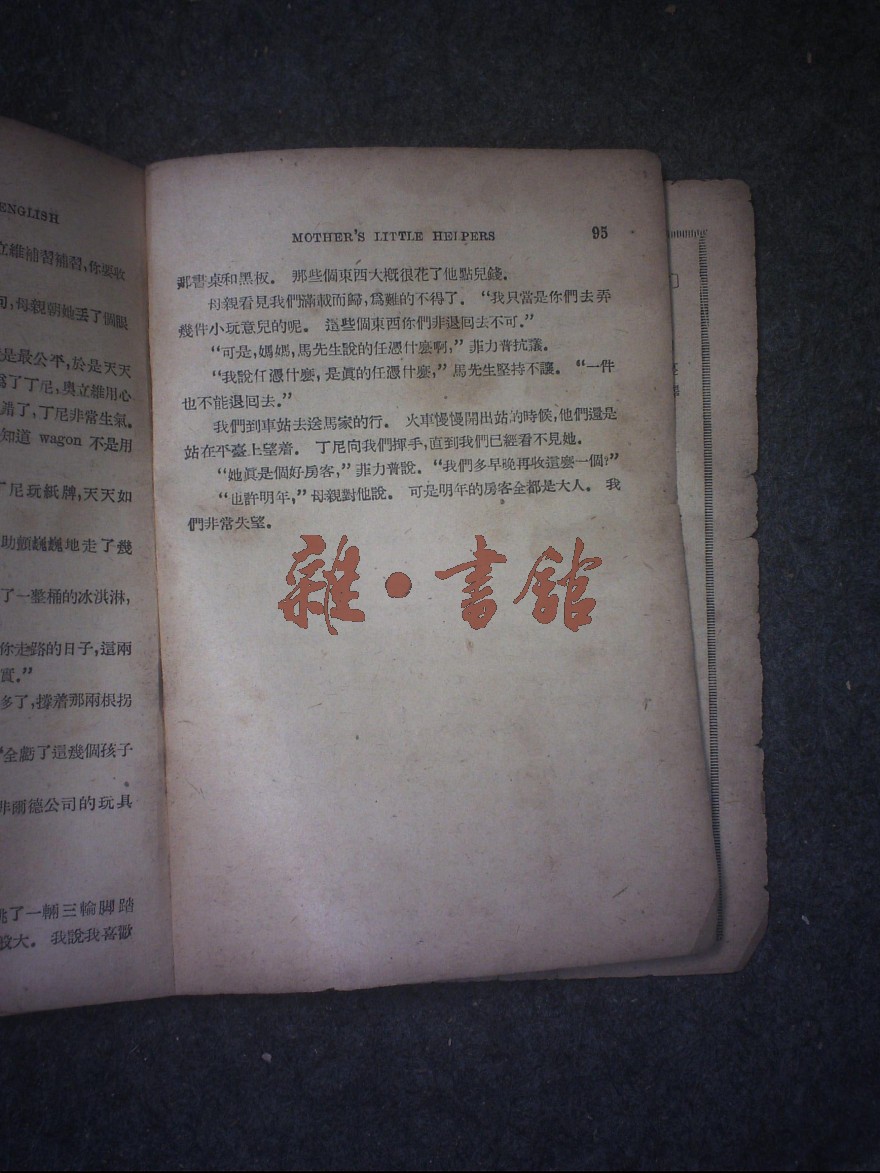 ENGLISH
立維補習補習,你要收
句,母親朝她丟了個眼
是最公平,於是天天
爲了丁尼,奧立維用心
錯了,丁尼非常生氣。
知道 wagon 不是用
丁尼玩紙牌,天天如
助顫巍巍地走了幾
了一整桶的冰淇淋,
你走路的日子,這兩
實。”
多了,撐着那兩根拐
“全虧了這幾個孩子
非爾德公司的玩具
挑了一輛三輪脚踏
般大。 我說我喜歡
MOTHER'S LITTLE HELPERS 95
那書桌和黑板。 那些個東西大概很花了他點兒錢。
母親看見我們滿載而歸,爲難的不得了。 “我只當是你們去弄
幾件小玩意兒的呢。 這些個東西你們非退回去不可。”
“可是,媽媽,馬先生說的任憑什麼啊,” 菲力普抗議。
“我說任憑什麼,是眞的任憑什麼,” 馬先生堅持不讓。 “一件
也不能退回去。”
我們到車站去送馬家的行。 火車慢慢開出站的時候,他們還是
站在平臺上望着。 丁尼向我們揮手,直到我們已經看不見她。
“她眞是個好房客,” 菲力普說。 “我們多早晚再收這麼一個?”
“也許明年,” 母親對他說。 可是明年的房客全都是大人。 我
們非常失望。
雜·書館